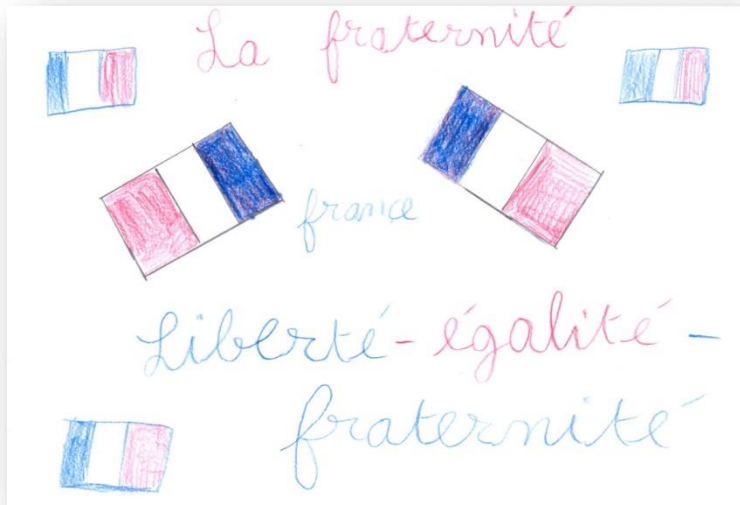 La fraternité
france
Liberté - égalité -
fraternité